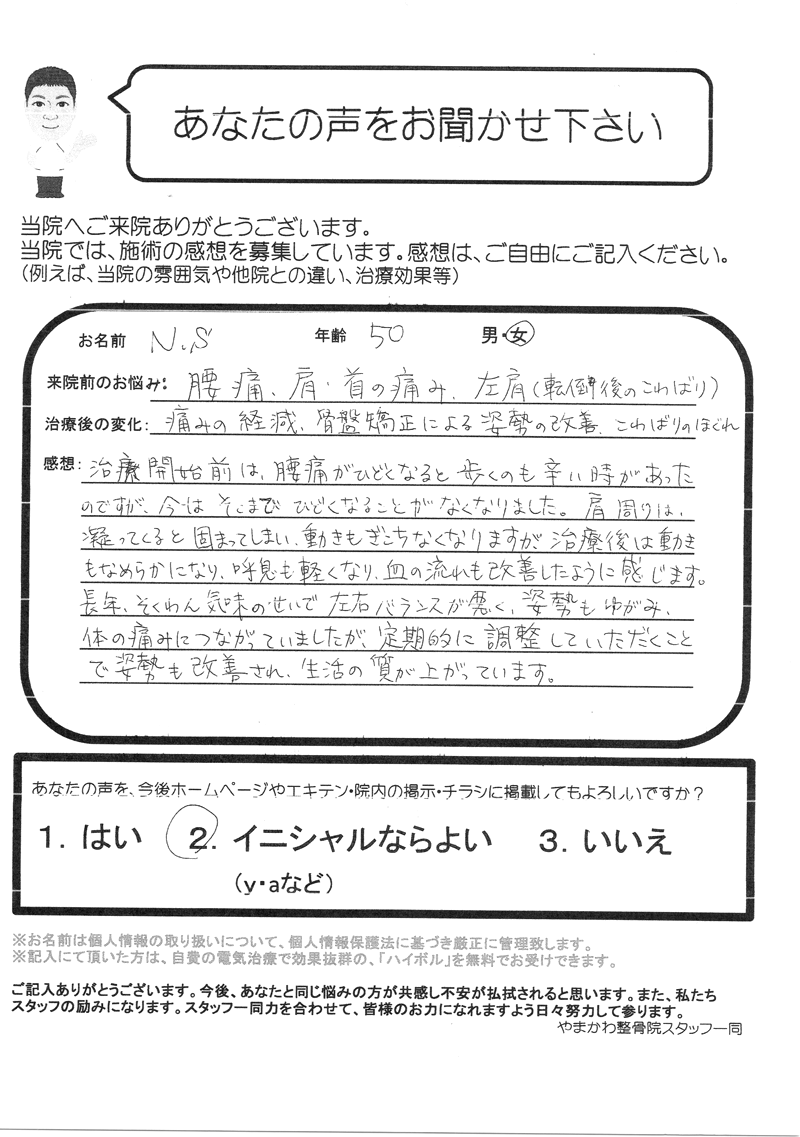 あなたの声をお聞かせ下さい
当院へご来院ありがとうございます。
当院では、施術の感想を募集しています。感想は、ご自由にご記入ください。
（例えば、当院の雰囲気や他院との違い、治療効果等）
お名前 N.S 年齢 50 男・女
来院前のお悩み： 腰痛、肩・首の痛み、左肩（転倒後のこわばり）
治療後の変化： 痛みの経減、骨盤矯正による姿勢の改善、こわばりのほぐれ
感想： 治療開始前は、腰痛がひどくなると歩くのも辛い時があった
のですが、今はそこまでひどくなることがなくなりました。肩周りは、
凝ってくると固まってしまい、動きもぎこちなくなりますが、治療後は動き
もなめらかになり、呼息も軽くなり、血の流れも改善したように感じます。
長年、そくわん気味のせいで左右バランスが悪く、姿勢もゆがみ、
体の痛みにつながっていましたが、定期的に調整していただくこと
で姿勢も改善され、生活の質が上がっています。
あなたの声を、今後ホームページやエキテン・院内の掲示・チラシに掲載してもよろしいですか？
1. はい 2. イニシャルならよい 3. いいえ
（y・aなど）
※お名前は個人情報の取り扱いについて、個人情報保護法に基づき厳正に管理致します。
※記入にて頂いた方は、自費の電気治療で効果抜群の、「ハイボル」を無料でお受けできます。
ご記入ありがとうございます。今後、あなたと同じ悩みの方が共感し不安が払拭されると思います。また、私たち
スタッフの励みになります。スタッフ一同力を合わせて、皆様のお力になれますよう日々努力して参ります。
やまかわ整骨院スタッフ一同